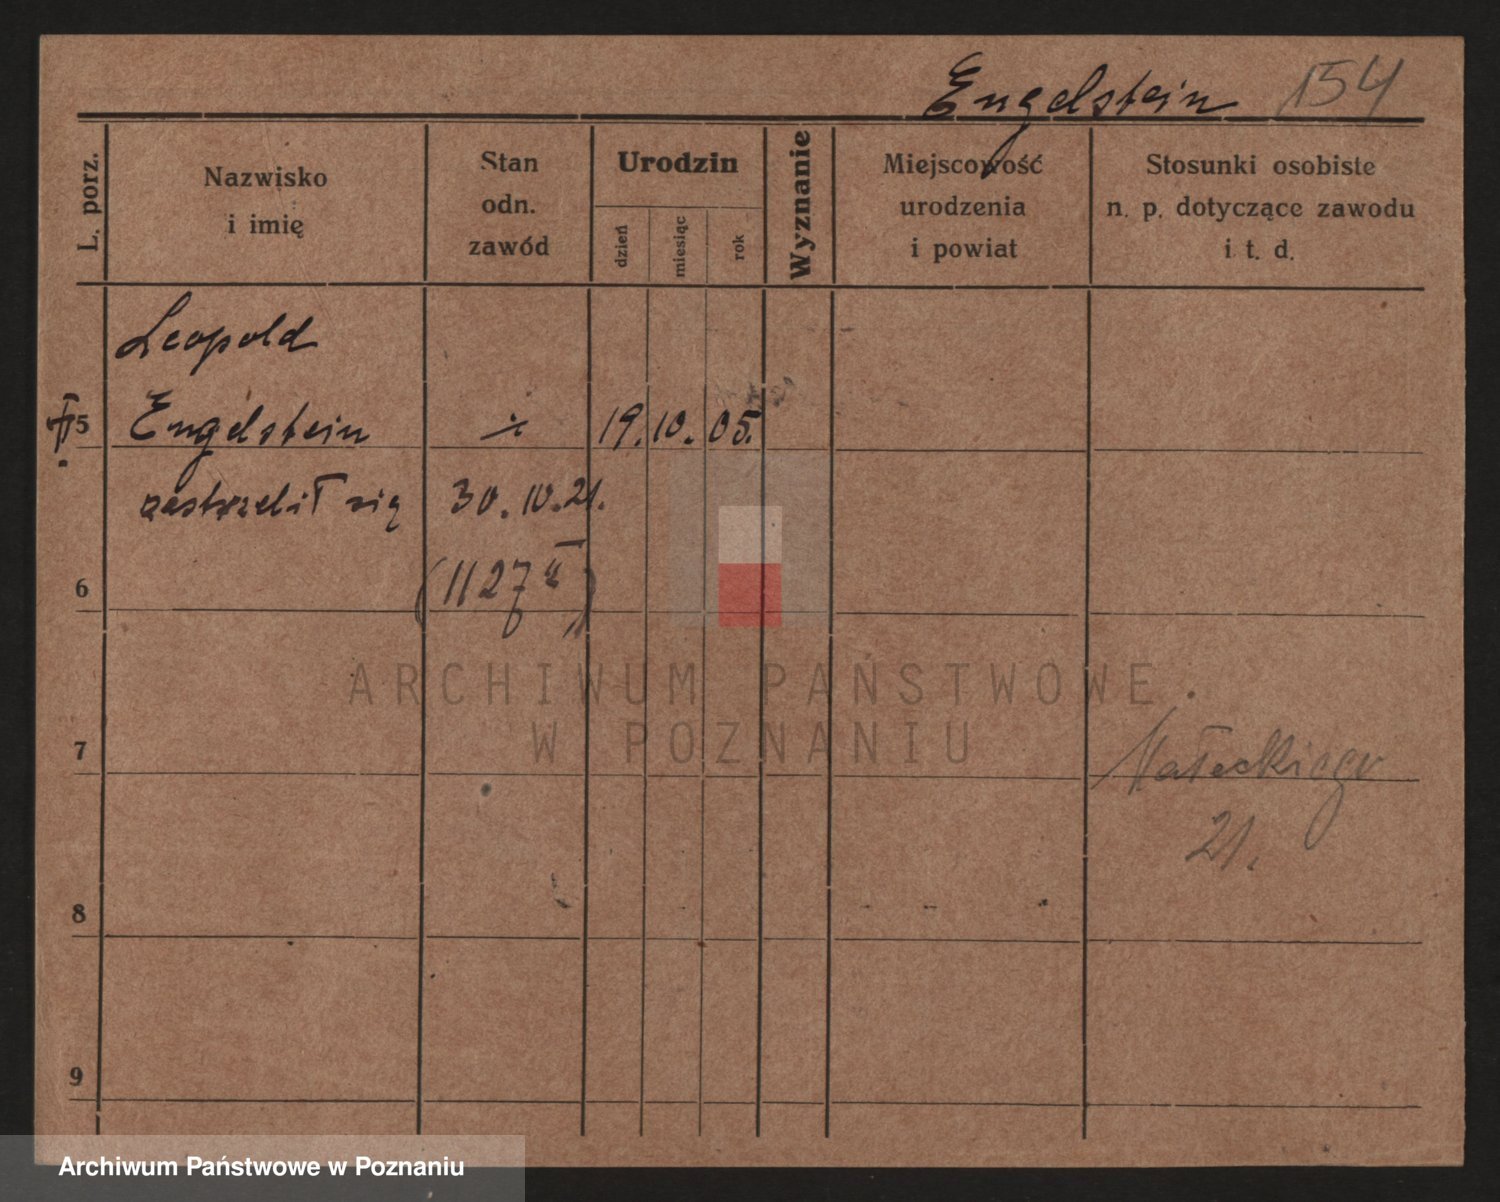 Engelstein 154
L. porz.
Nazwisko
i imię
Stan
odn.
zawód
Urodzin
dzień
miesiąc
rok
Wyznanie
Miejscowość
urodzenia
i powiat
Stosunki osobiste
n. p. dotyczące zawodu
i t. d.
Leopold
5 Engelstein ⁒ 19. 10. 05.
zastrzelił się 30. 10. 21.
6 (1127
ARCHIWUM PAŃSTWOWE
W POZNANIU
7 Małeckiego
21.
8
9
Archiwum Państwowe w Poznaniu